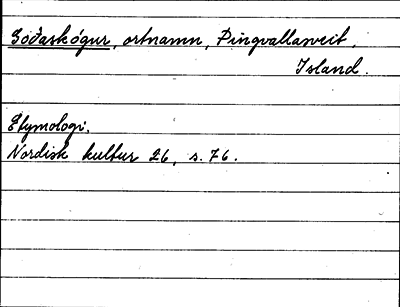 Goðaskógur, ortnamn, Þingvallasveit,
Island.
Etymologi.
Nordisk kultur 26, s. 76.